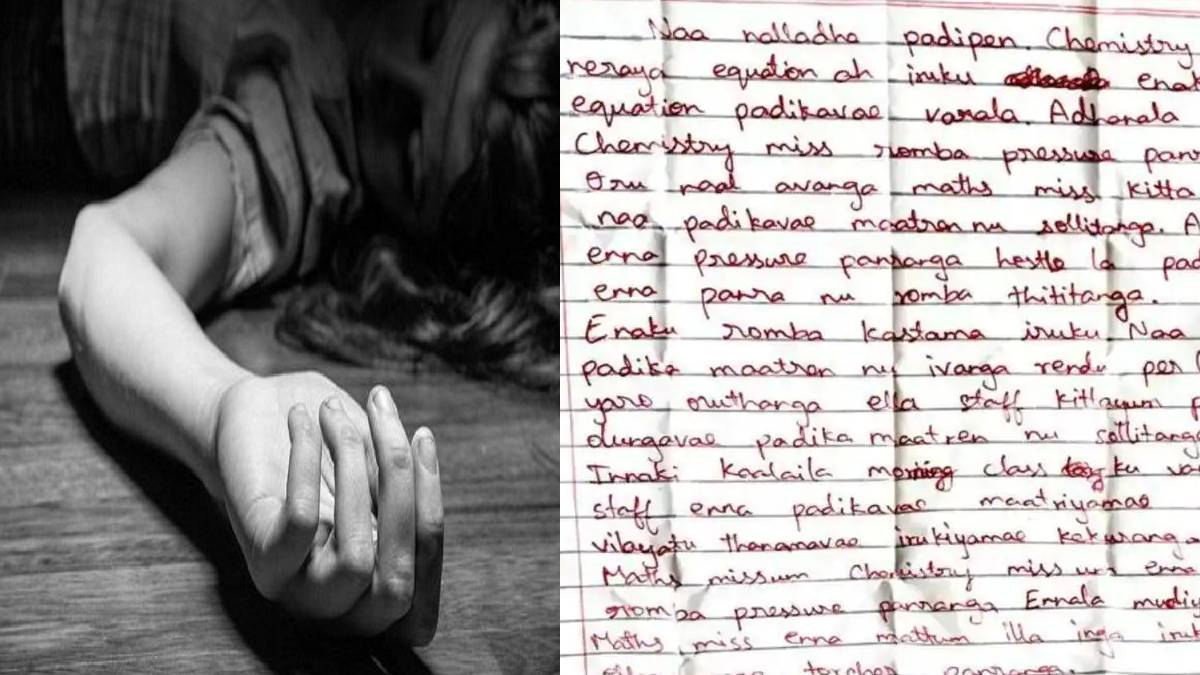 Naa nalladha padipen. Chemistry
neraya equation ah iruku
equation padikavae varala. Adhanala
Chemistry miss romba pressure
Oru naal avanga maths miss kitta
naa padikavae maatren nu sollitanga.
enna pressure panranga hostle la
enna panra nu romba thititanga.
Enaku romba kastama iruku. Naa
padika maatren nu ivanga rendu per
yaro oruthanga ella staff kitlayum
olungavae padika maatren nu sollitanga
Innaki kaalaila morning class ku
staff enna padikavae maatriyamae
vilayatu thanamavae irukiyamae kekuranga
Maths missum Chemistry miss um enna
romba pressure panranga Ennala
Maths miss enna mattum illa inga
torcher panranga.